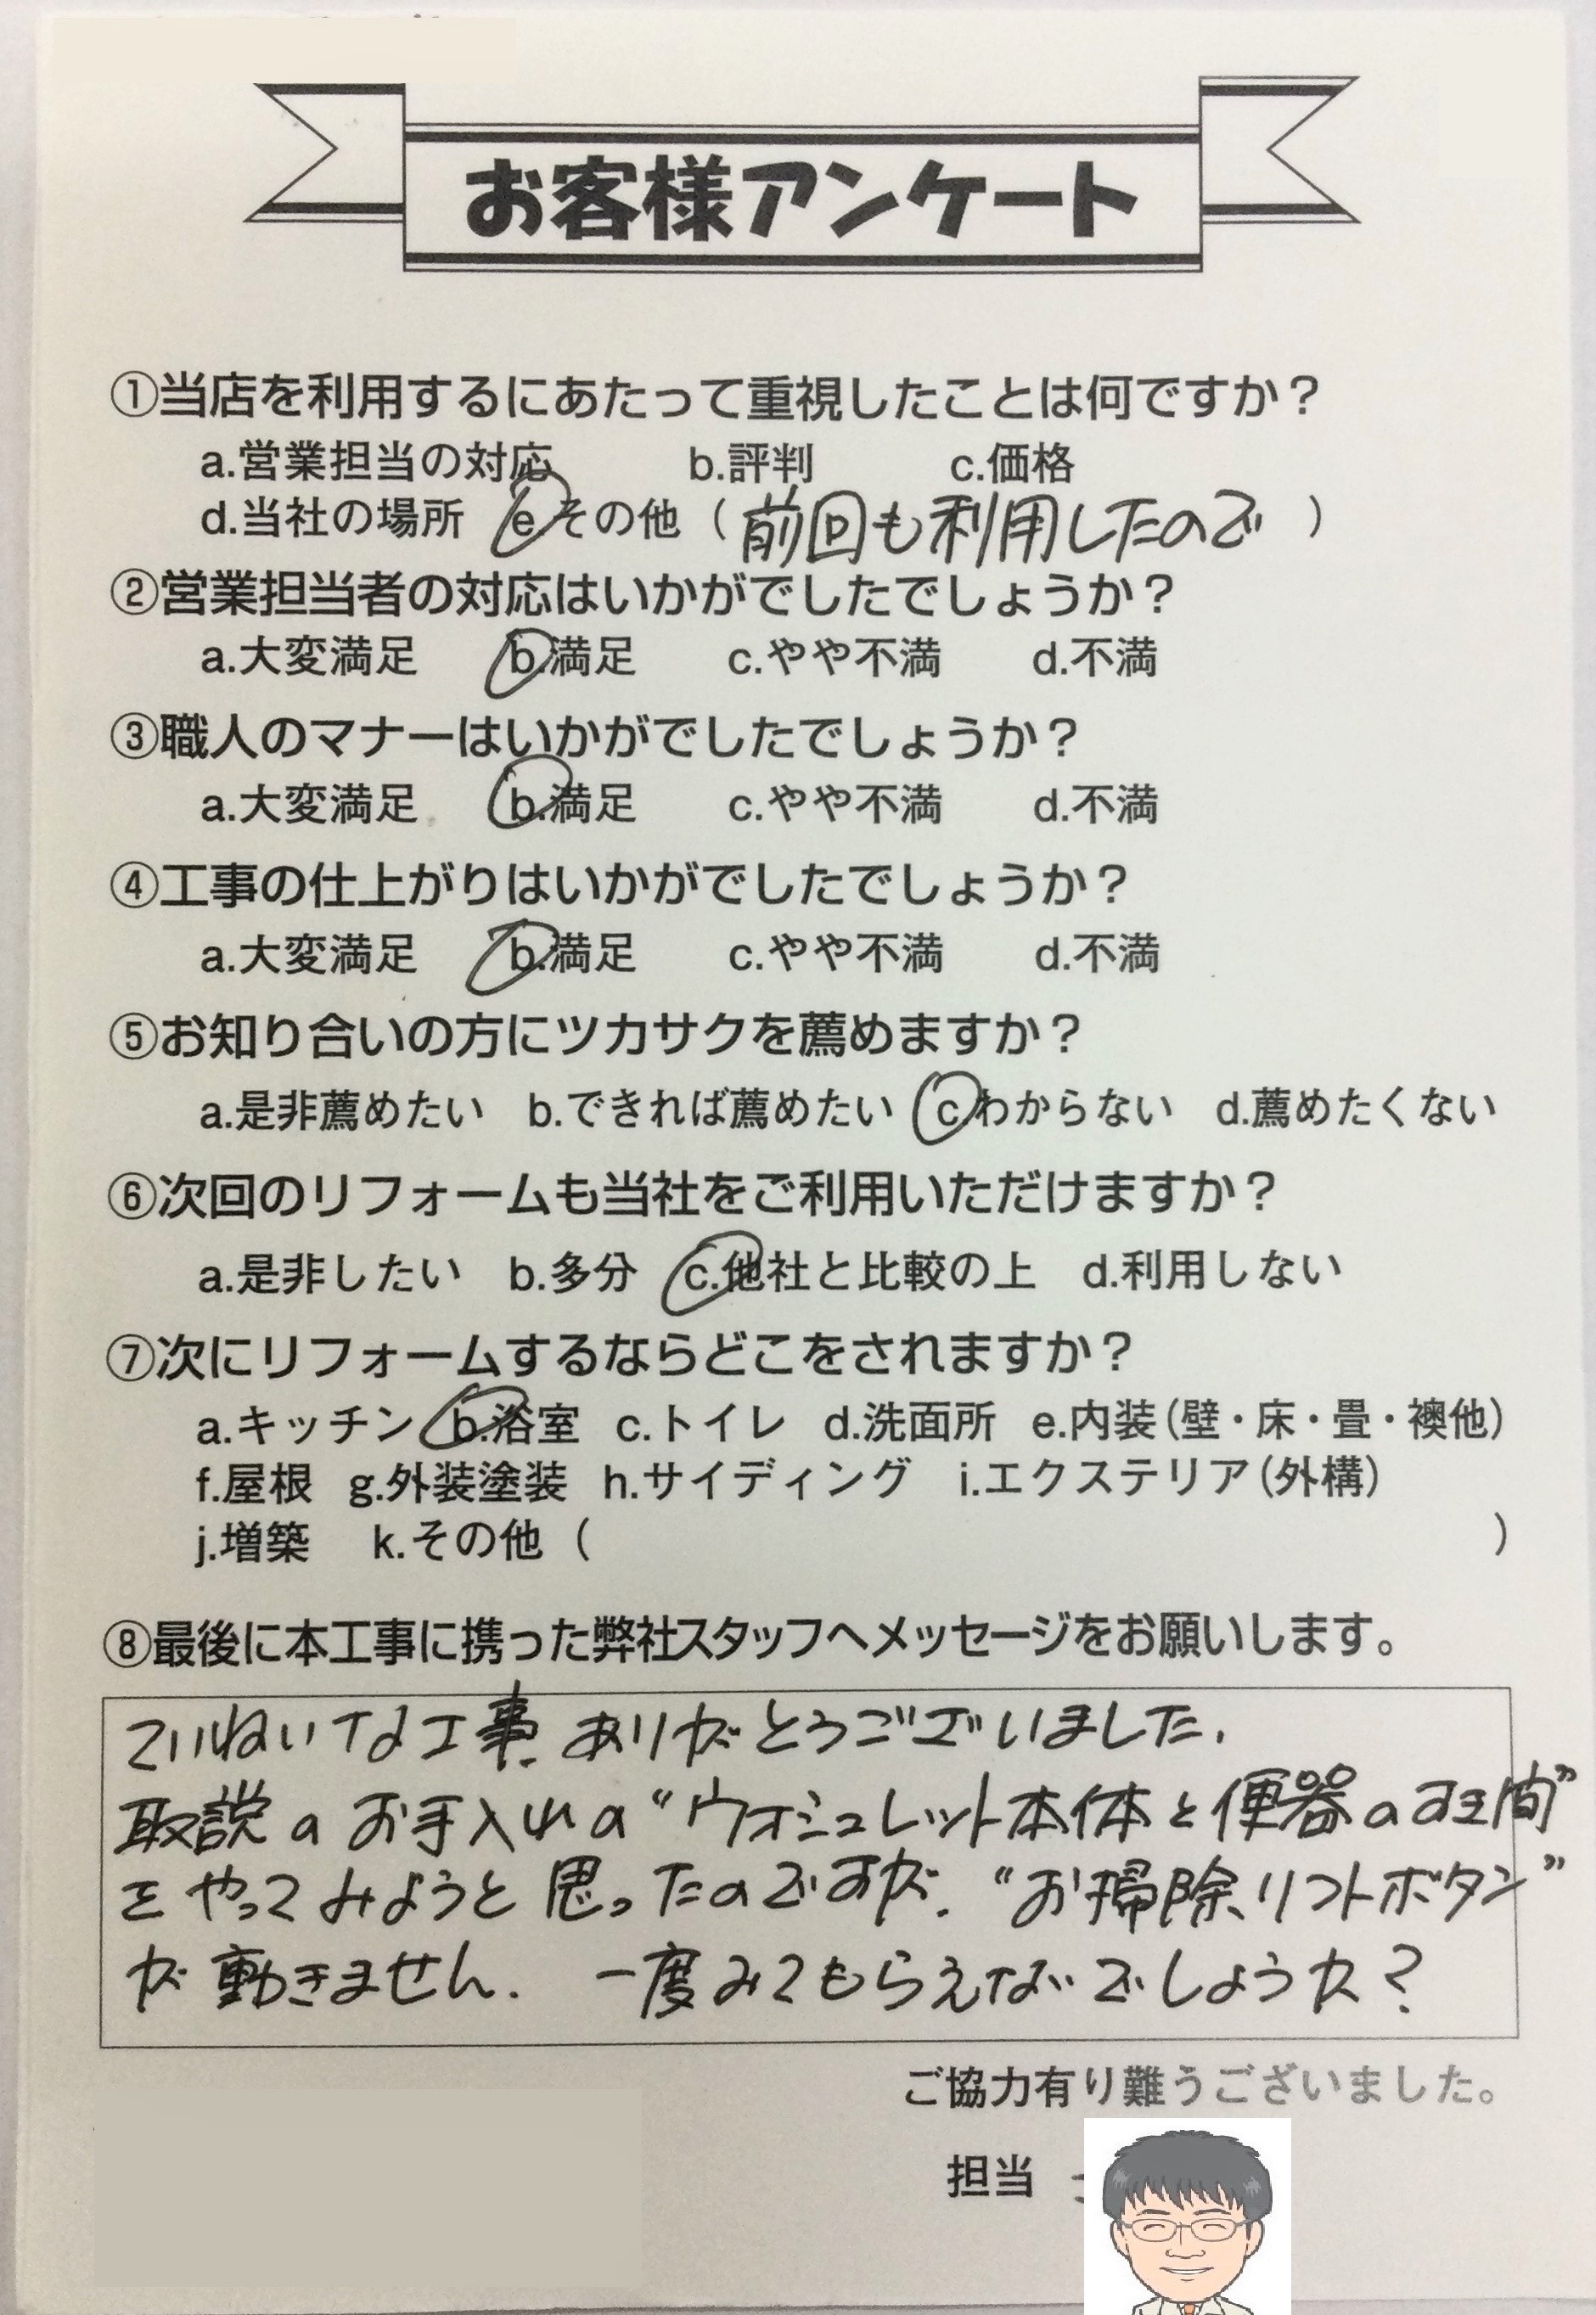 お客様アンケート
①当店を利用するにあたって重視したことは何ですか？
a.営業担当の対応 b.評判 c.価格
d.当社の場所 e.その他（前回も利用したので）
②営業担当者の対応はいかがでしたでしょうか？
a.大変満足 b.満足 c.やや不満 d.不満
③職人のマナーはいかがでしたでしょうか？
a.大変満足 b.満足 c.やや不満 d.不満
④工事の仕上がりはいかがでしたでしょうか？
a.大変満足 b.満足 c.やや不満 d.不満
⑤お知り合いの方にツカサクを薦めますか？
a.是非薦めたい b.できれば薦めたい c.わからない d.薦めたくない
⑥次回のリフォームも当社をご利用いただけますか？
a.是非したい b.多分 c.他社と比較の上 d.利用しない
⑦次にリフォームするならどこをされますか？
a.キッチン b.浴室 c.トイレ d.洗面所 e.内装（壁・床・畳・襖他）
f.屋根 g.外装塗装 h.サイディング i.エクステリア（外構）
j.増築 k.その他（ ）
⑧最後に本工事に携った弊社スタッフへメッセージをお願いします。
ていねいな工事、ありがとうございました。
取説のお手入れの“ウォシュレット本体と便器のすき間”
をやってみようと思ったのですが、“お掃除リフトボタン”
が動きません。 一度みてもらえないでしょうか？
ご協力有り難うございました。
担当